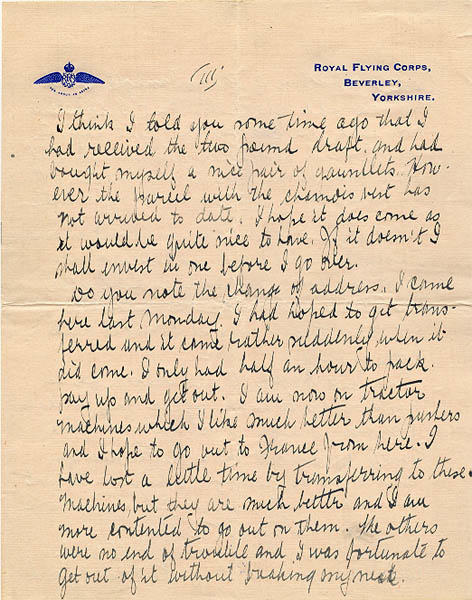 (III)
ROYAL FLYING CORPS,
BEVERLEY,
YORKSHIRE.
I think I told you some time ago that I
had received the two pound draft and had
bought myself a nice pair of gauntlets. How-
ever the parcel with the chamois vest has
not arrived to date. I hope it does come as
it would be quite nice to have. If it doesn't I
shall invest in one before I go over.
Do you note the change of address. I came
here last Monday. I had hoped to get trans-
ferred and it came rather suddenly when it
did come. I only had half an hour to pack
pay up and get out. I am now on tractor
machines which I like much better than pushers
and I hope to go out to France from here. I
have lost a little time by transferring to these
machines but they are much better and I am
more contented to go out on them. The others
were no end of trouble and I was fortunate to
get out of it without breaking my neck.